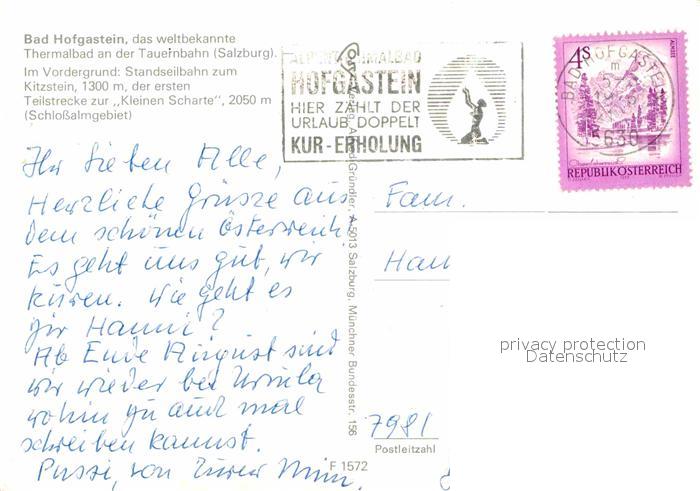 Bad Hofgastein, das weltbekannte
Thermalbad an der Tauernbahn (Salzburg).
Im Vordergrund: Standseilbahn zum
Kitzstein, 1300 m, der ersten
Teilstrecke zur „Kleinen Scharte", 2050 m
(Schloßalmgebiet)
HOFGASTEIN
HIER ZÄHLT DER
URLAUB DOPPELT
KUR-ERHOLUNG
4S
BAD HOFGASTEIN
5630
REPUBLIK ÖSTERREICH
Ihr Lieben Alle,
Herzliche Grüsse aus
dem schönen Österreich.
Es geht uns gut, wir
kuren. Wie geht es
Dir Hanni?
Ab Ende August sind
wir wieder bei Ursula
wohin Du auch mal
schreiben kannst.
Bussi, von Eurer Mimi
Gründler, A-5013 Salzburg, Münchner Bundesstr. 156
F 1572
Fam.
Han
7981
Postleitzahl
privacy protection
Datenschutz